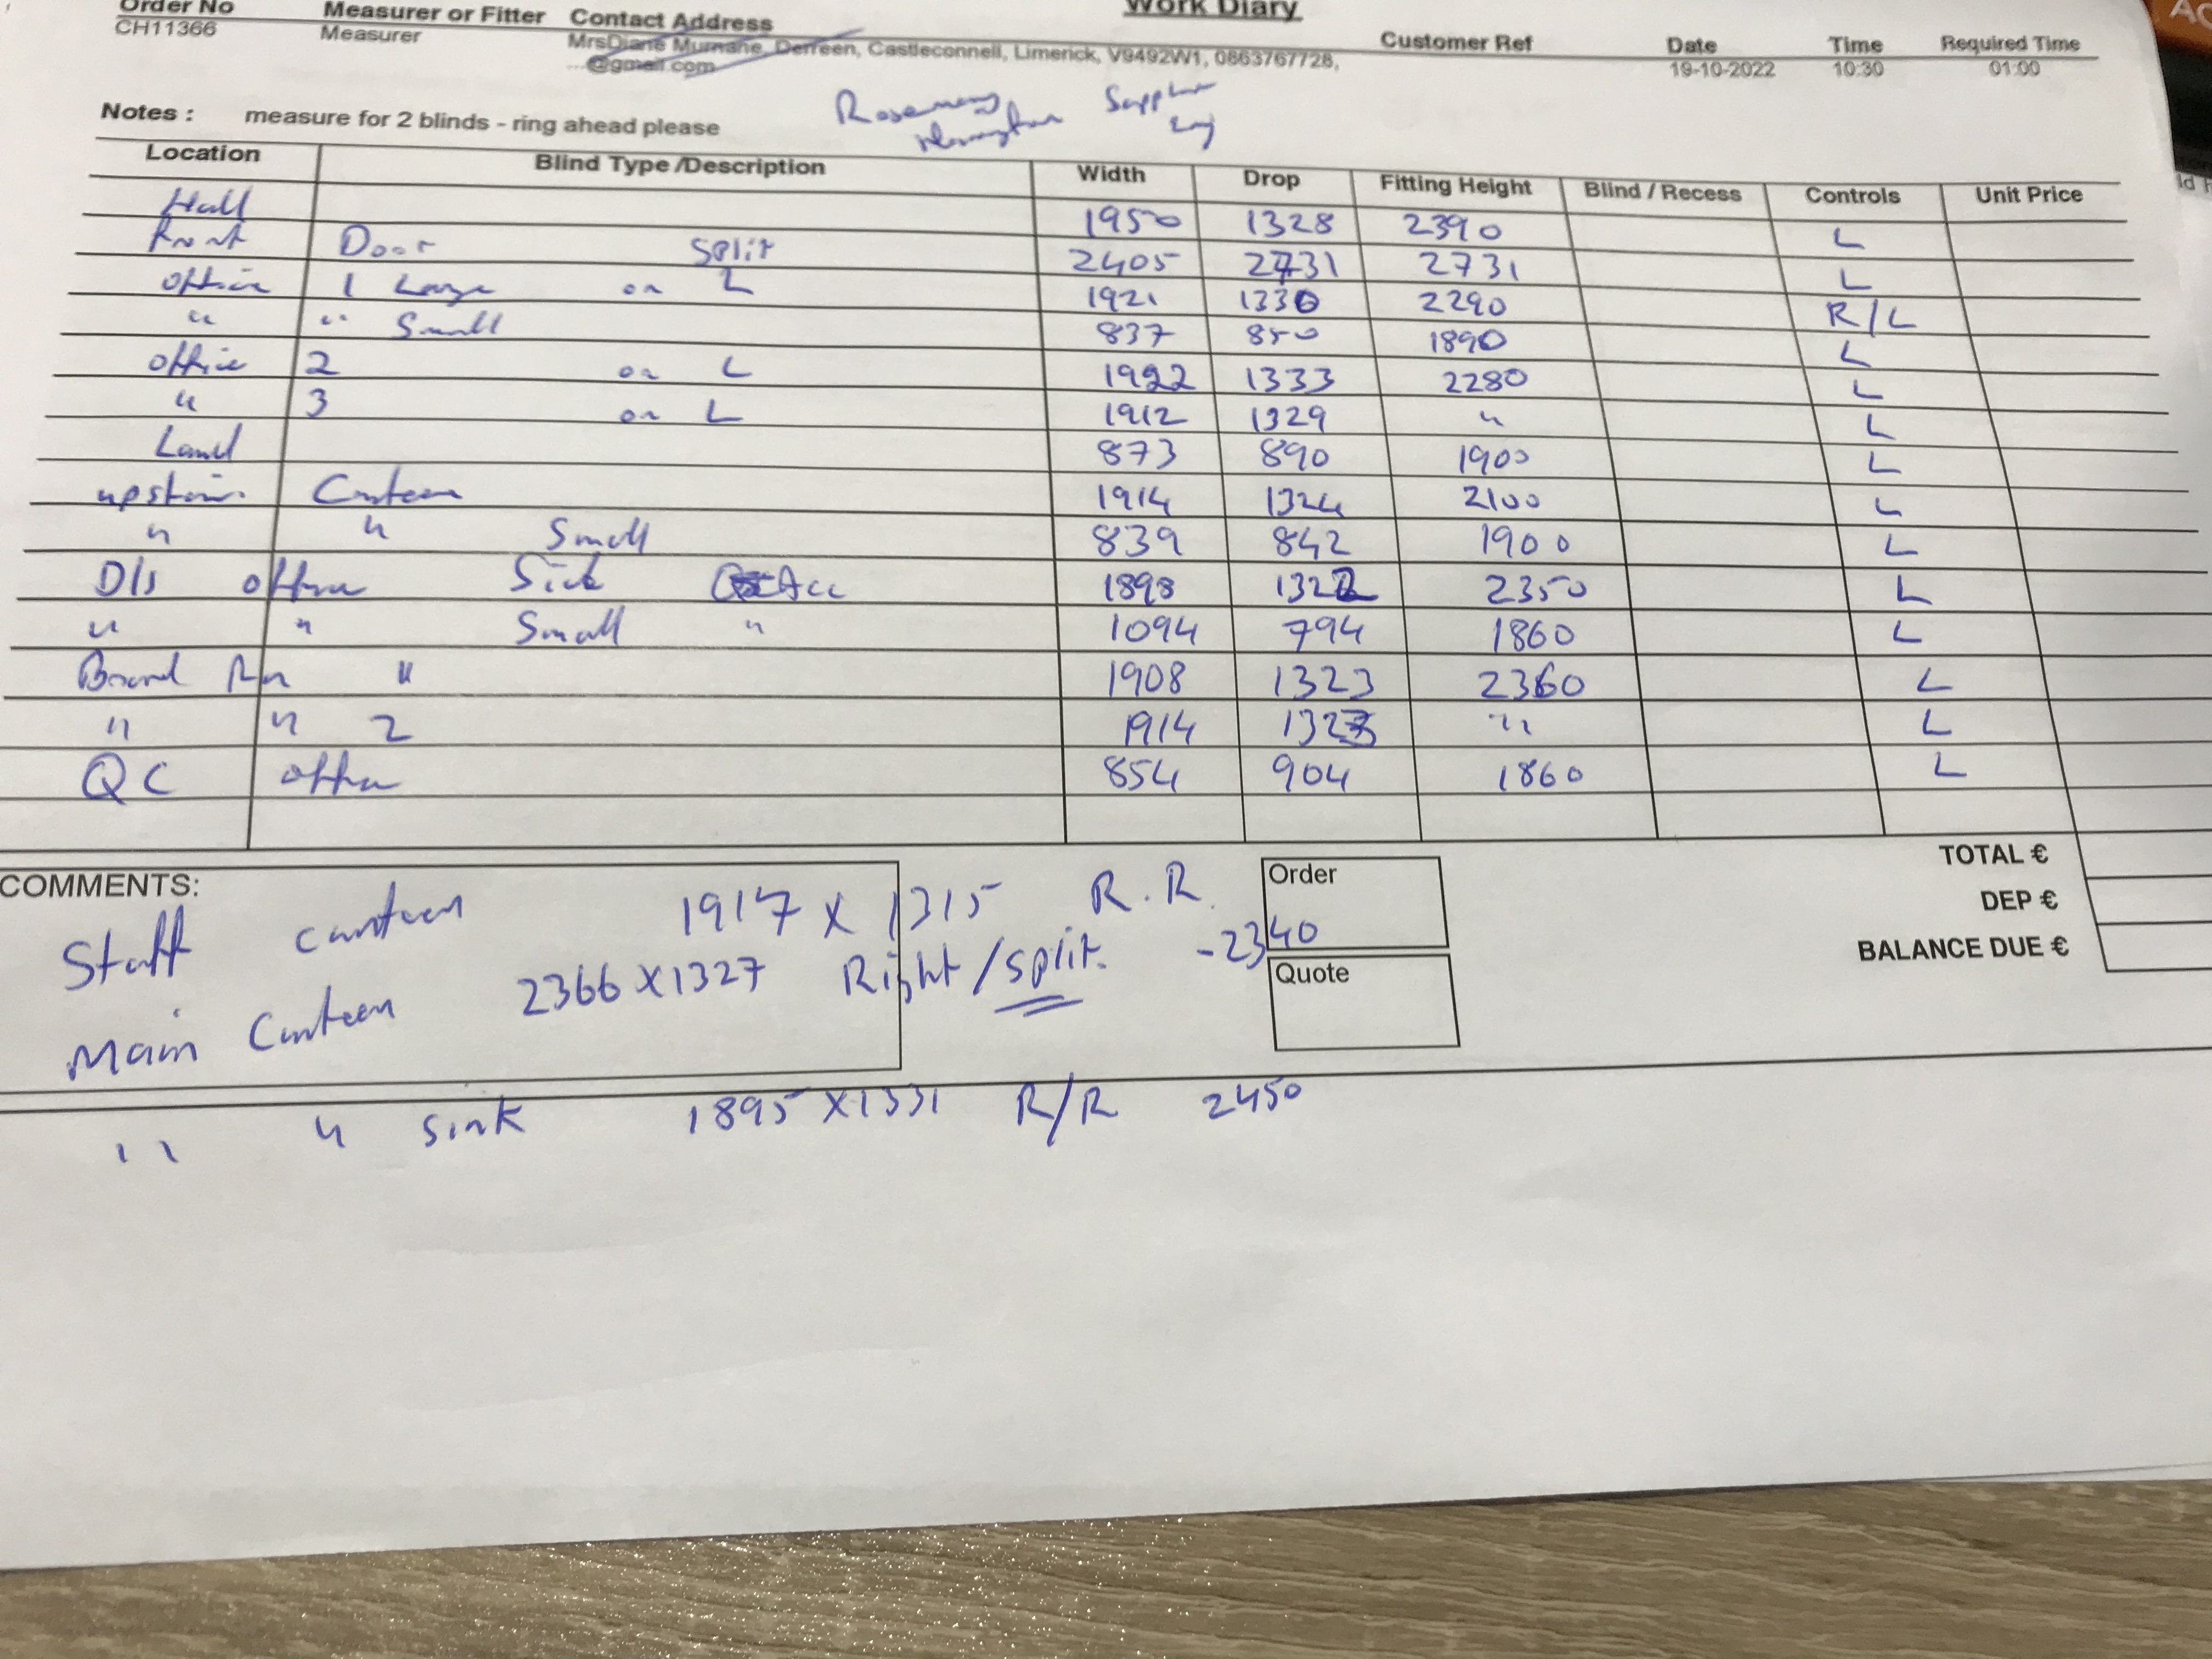 Work Diary
Order No Measurer or Fitter Contact Address Customer Ref Date Time Required Time
CH11366 Measurer MrsDiane Murnane, Derreen, Castleconnell, Limerick, V9492W1, 0863767728, 19-10-2022 10:30 01:00
...@gmail.com
Rosemary
Notes : measure for 2 blinds - ring ahead please
Location Blind Type /Description Width Drop Fitting Height Blind / Recess Controls Unit Price
Hall 1950 1328 2390 L
Front Door Split 2405 2731 2731 L
office 1 Large on L 1921 1330 2290 R/L
" " Small 837 850 1890 L
office 2 on L 1922 1333 2280 L
" 3 on L 1912 1329 " L
Land 873 890 1900 L
upstairs Canteen 1914 1324 2100 L
" " Small 839 842 1900 L
D/s office Acc 1898 1322 2350 L
" " Small " 1094 794 1860 L
Board Rm " 1908 1323 2360 L
" " 2 1914 1323 " L
QC office 854 904 1860 L
TOTAL €
DEP €
BALANCE DUE €
COMMENTS:
Order
Quote
Staff canteen 1917 x 1315 R.R. -2340
Main Canteen 2366 x 1327 Right/split.
" " sink 1895 x 1331 R/R 2450